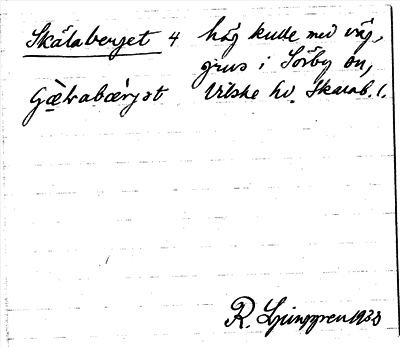 Skålaberget 4 hög kulle med väg,
grus i Sörby sn,
Vilske hd. Skarab. l.
R. Ljunggren 1930